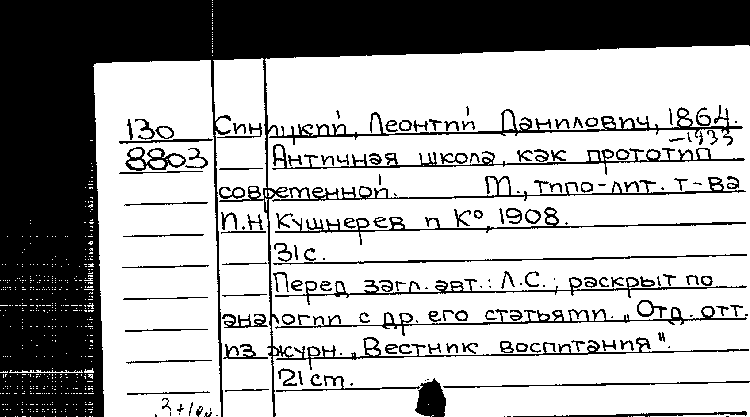 130 Синицкий, Леонтий Данилович, 1864.
-1933
8803 Античная школа, как прототип
современной. М., типо-лит. т-ва
И.Н Кушнерев и К°, 1908.
31с.
Перед загл. авт.: Л.С.; раскрыт по
аналогии с др. его статьями. „Отд. отт.
из журн. „Вестник воспитания".
21 cm.